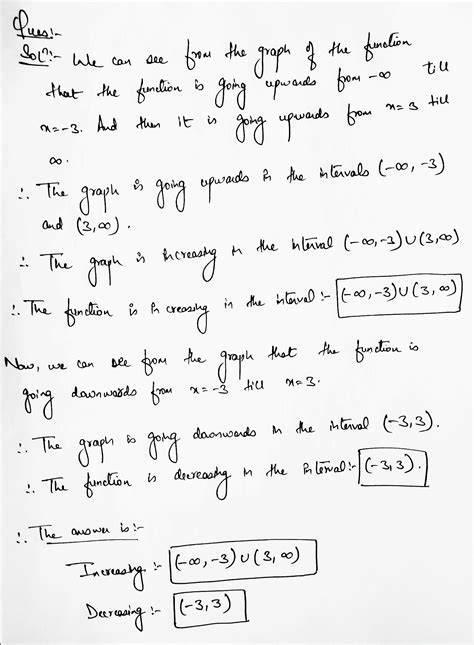 Ques:-
Solⁿ:- We can see from the graph of the function
that the function is going upwards from -∞ till
x=-3. And then it is going upwards from x=3 till
∞.
∴ The graph is going upwards in the intervals (-∞, -3)
and (3,∞).
∴ The graph is increasing in the interval (-∞,-3)U(3,∞)
∴ The function is increasing in the interval:- (-∞,-3)U(3,∞)
Now, we can see from the graph that the function is
going downwards from x=-3 till x=3.
∴ The graph is going downwards in the interval (-3,3).
∴ The function is decreasing in the interval:- (-3,3).
∴ The answer is:-
Increasing:- (-∞,-3)U(3,∞)
Decreasing:- (-3,3)